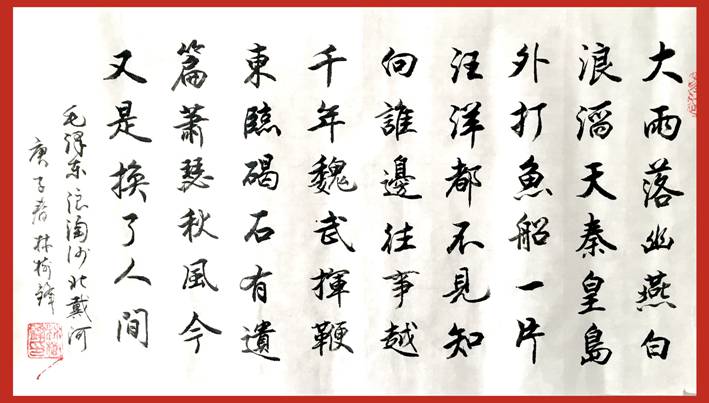 大雨落幽燕白
浪滔天秦皇島
外打魚船一片
汪洋都不見知
向誰邊往事越
千年魏武揮鞭
東臨碣石有遺
篇蕭瑟秋風今
又是換了人间
毛泽东浪淘沙北戴河
庚子春林